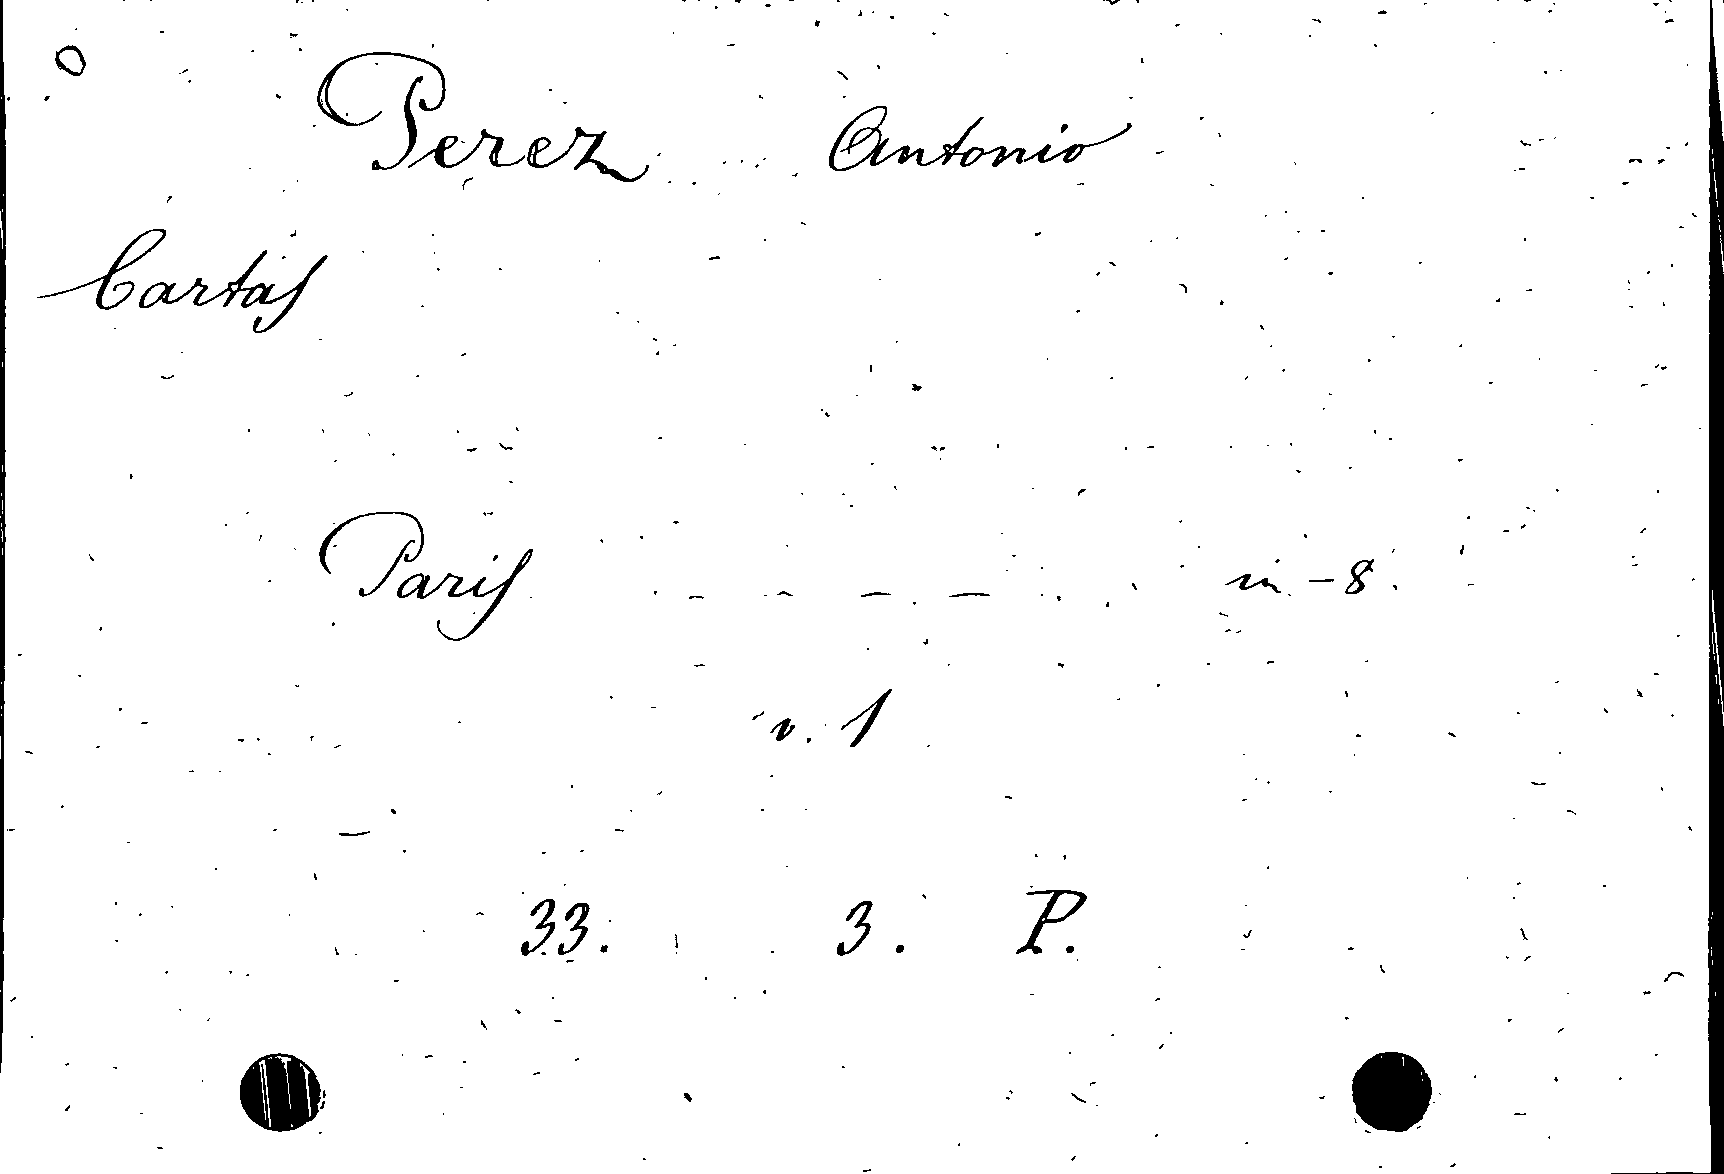 Perez Antonio
Cartas
Paris - - - - in-8.
v. 1
33. 3. P.